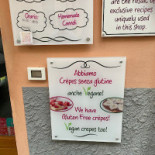 Churros
Homemade
Cannoli
result of
exclusive recipes
uniquely used
in this shop.
Abbiamo
Crêpes senza glutine
anche Vegane!
We have
Gluten Free crêpes!
Vegan crepes too!